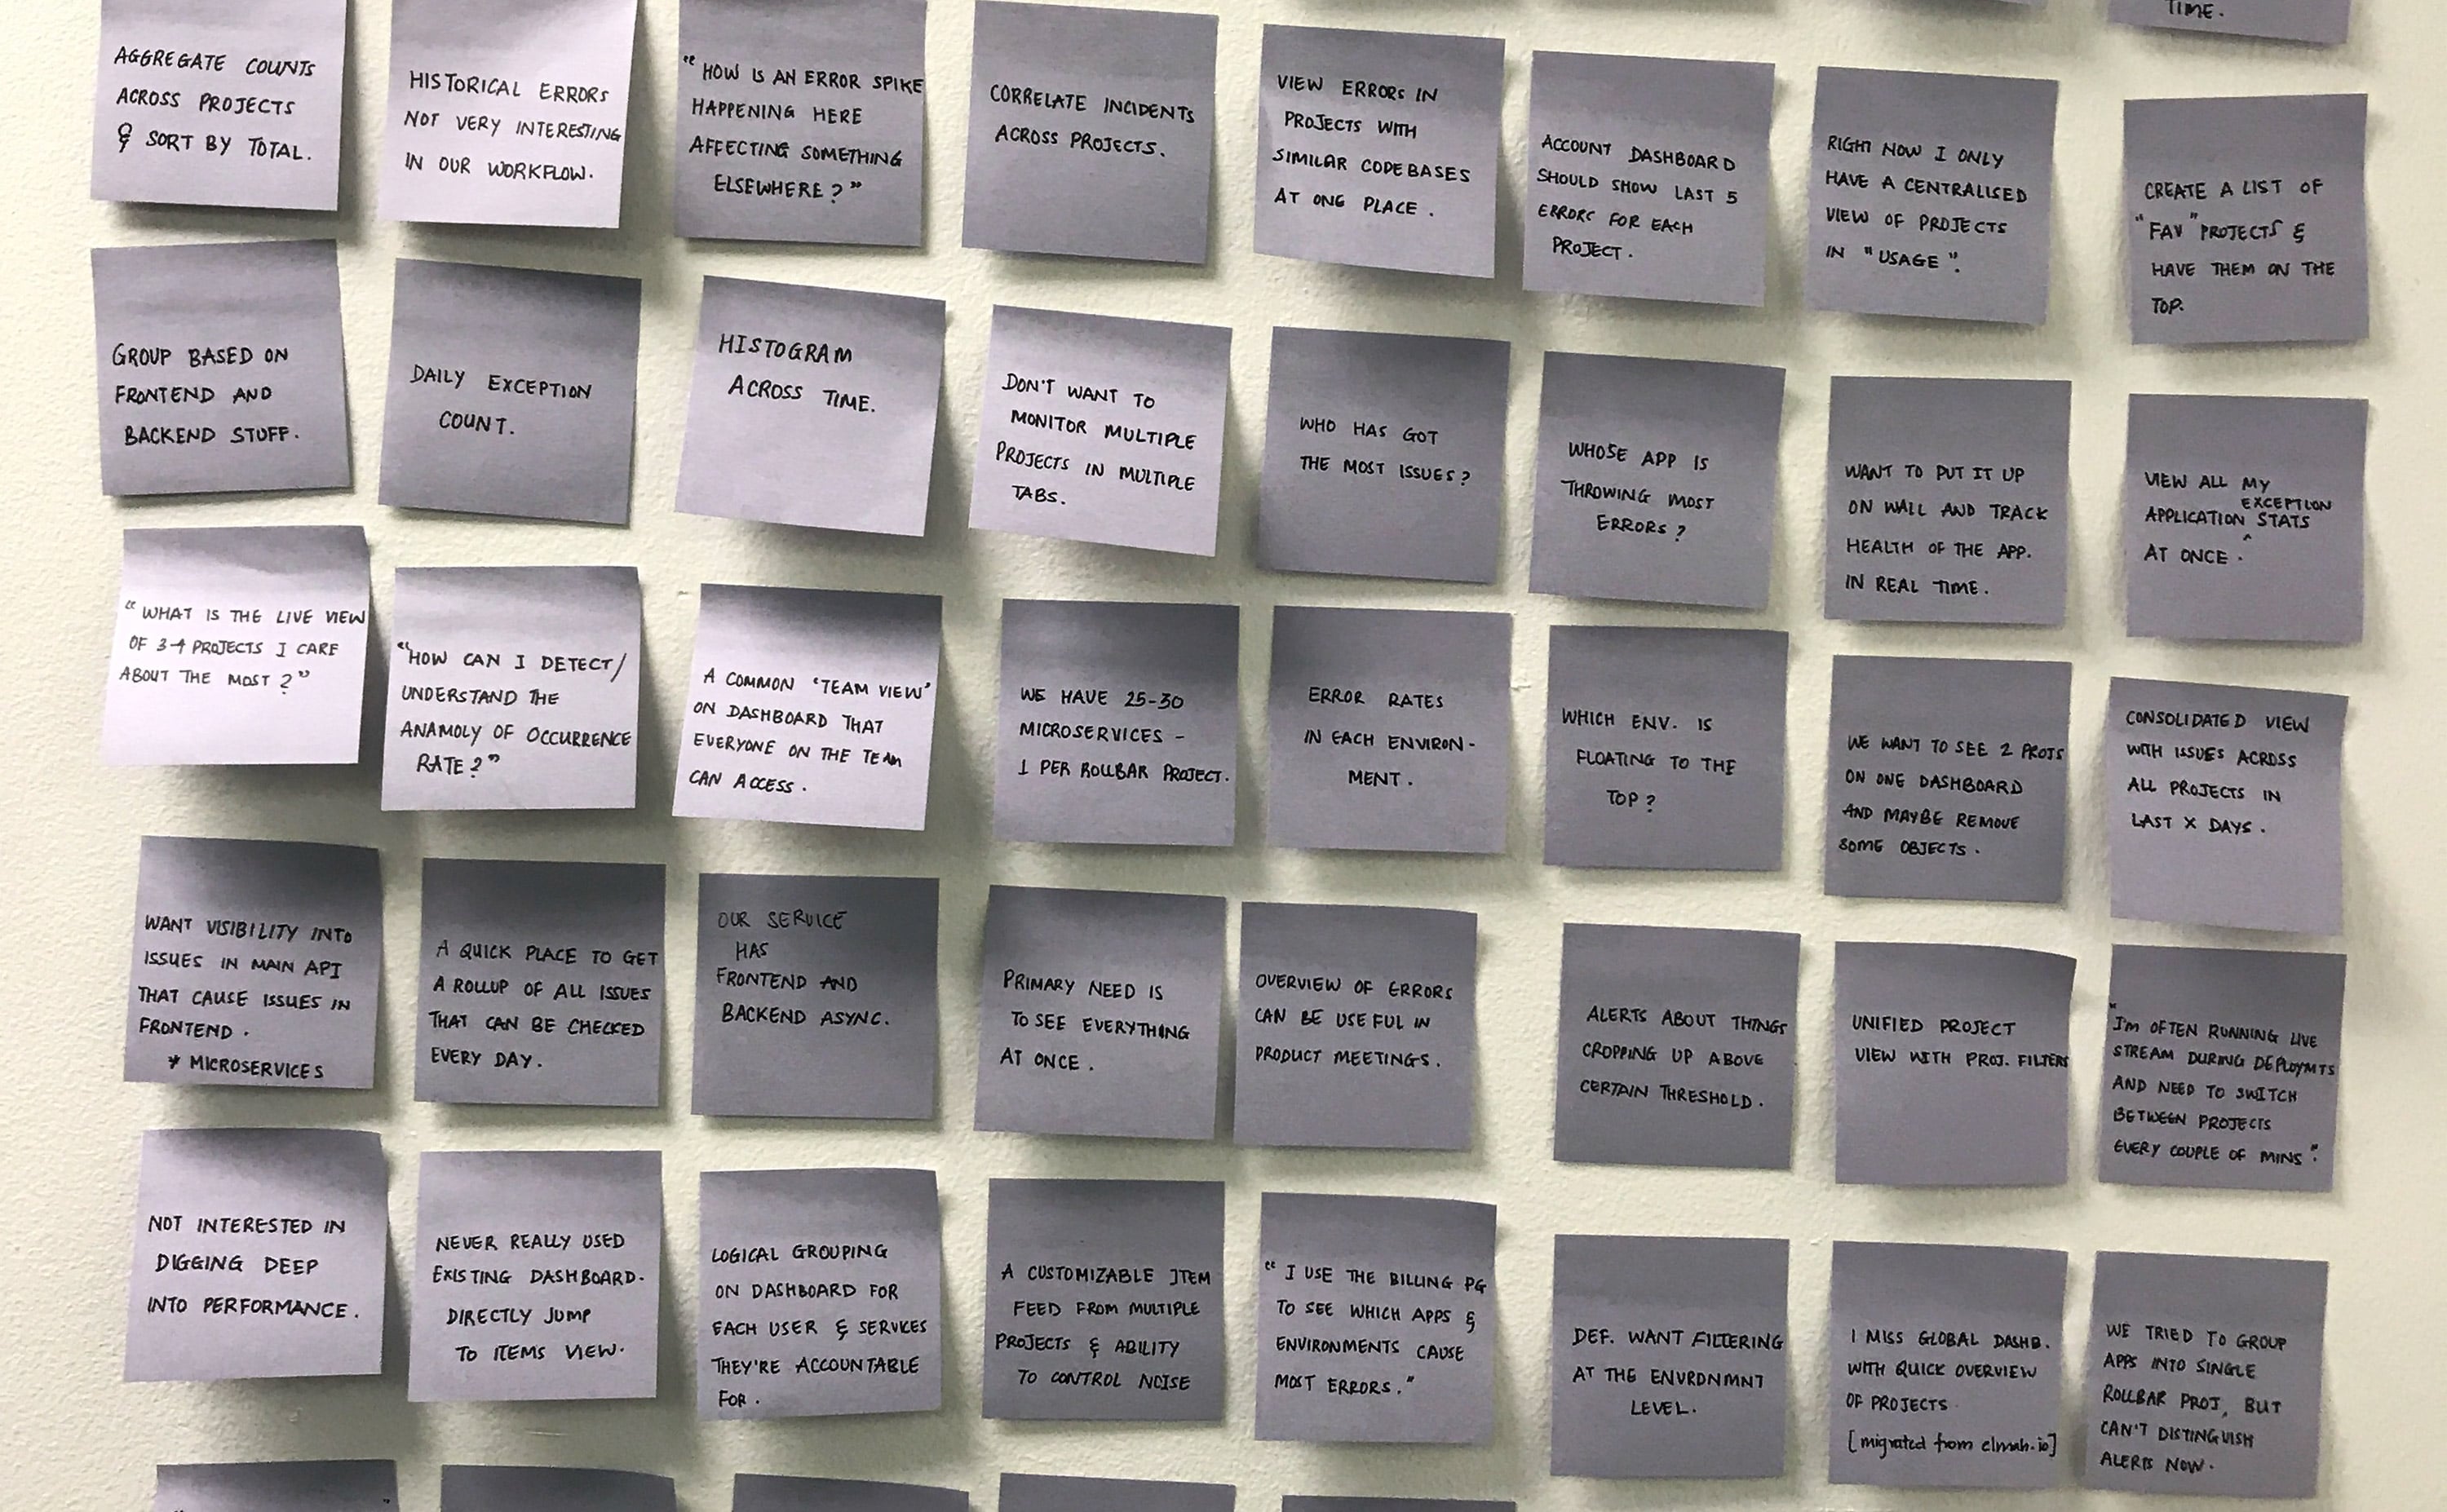 TIME.
AGGREGATE COUNTS
ACROSS PROJECTS
& SORT BY TOTAL.
HISTORICAL ERRORS
NOT VERY INTERESTING
IN OUR WORKFLOW.
"HOW IS AN ERROR SPIKE
HAPPENING HERE
AFFECTING SOMETHING
ELSEWHERE?"
CORRELATE INCIDENTS
ACROSS PROJECTS.
VIEW ERRORS IN
PROJECTS WITH
SIMILAR CODEBASES
AT ONE PLACE.
ACCOUNT DASHBOARD
SHOULD SHOW LAST 5
ERRORS FOR EACH
PROJECT.
RIGHT NOW I ONLY
HAVE A CENTRALISED
VIEW OF PROJECTS
IN "USAGE".
CREATE A LIST OF
"FAV" PROJECTS &
HAVE THEM ON THE
TOP.
GROUP BASED ON
FRONTEND AND
BACKEND STUFF.
DAILY EXCEPTION
COUNT.
HISTOGRAM
ACROSS TIME.
DON'T WANT TO
MONITOR MULTIPLE
PROJECTS IN MULTIPLE
TABS.
WHO HAS GOT
THE MOST ISSUES?
WHOSE APP IS
THROWING MOST
ERRORS?
WANT TO PUT IT UP
ON WALL AND TRACK
HEALTH OF THE APP.
IN REAL TIME.
VIEW ALL MY
EXCEPTION
APPLICATION ^ STATS
AT ONCE.
"WHAT IS THE LIVE VIEW
OF 3-4 PROJECTS I CARE
ABOUT THE MOST?"
"HOW CAN I DETECT/
UNDERSTAND THE
ANAMOLY OF OCCURRENCE
RATE?"
A COMMON 'TEAM VIEW'
ON DASHBOARD THAT
EVERYONE ON THE TEAM
CAN ACCESS.
WE HAVE 25-30
MICROSERVICES -
1 PER ROLLBAR PROJECT.
ERROR RATES
IN EACH ENVIRON-
MENT.
WHICH ENV. IS
FLOATING TO THE
TOP?
WE WANT TO SEE 2 PROJS
ON ONE DASHBOARD
AND MAYBE REMOVE
SOME OBJECTS.
CONSOLIDATED VIEW
WITH ISSUES ACROSS
ALL PROJECTS IN
LAST X DAYS.
WANT VISIBILITY INTO
ISSUES IN MAIN API
THAT CAUSE ISSUES IN
FRONTEND.
* MICROSERVICES
A QUICK PLACE TO GET
A ROLLUP OF ALL ISSUES
THAT CAN BE CHECKED
EVERY DAY.
OUR SERVICE
HAS
FRONTEND AND
BACKEND ASYNC.
PRIMARY NEED IS
TO SEE EVERYTHING
AT ONCE.
OVERVIEW OF ERRORS
CAN BE USEFUL IN
PRODUCT MEETINGS.
ALERTS ABOUT THINGS
CROPPING UP ABOVE
CERTAIN THRESHOLD.
UNIFIED PROJECT
VIEW WITH PROJ. FILTERS
"I'M OFTEN RUNNING LIVE
STREAM DURING DEPLOYMTS
AND NEED TO SWITCH
BETWEEN PROJECTS
EVERY COUPLE OF MINS".
NOT INTERESTED IN
DIGGING DEEP
INTO PERFORMANCE.
NEVER REALLY USED
EXISTING DASHBOARD.
DIRECTLY JUMP
TO ITEMS VIEW.
LOGICAL GROUPING
ON DASHBOARD FOR
EACH USER & SERVICES
THEY'RE ACCOUNTABLE
FOR.
A CUSTOMIZABLE ITEM
FEED FROM MULTIPLE
PROJECTS & ABILITY
TO CONTROL NOISE
"I USE THE BILLING PG
TO SEE WHICH APPS &
ENVIRONMENTS CAUSE
MOST ERRORS."
DEF. WANT FILTERING
AT THE ENVRDNMNT
LEVEL.
I MISS GLOBAL DASHB.
WITH QUICK OVERVIEW
OF PROJECTS
[migrated from elmah.io]
WE TRIED TO GROUP
APPS INTO SINGLE
ROLLBAR PROJ, BUT
CAN'T DISTINGUISH
ALERTS NOW.